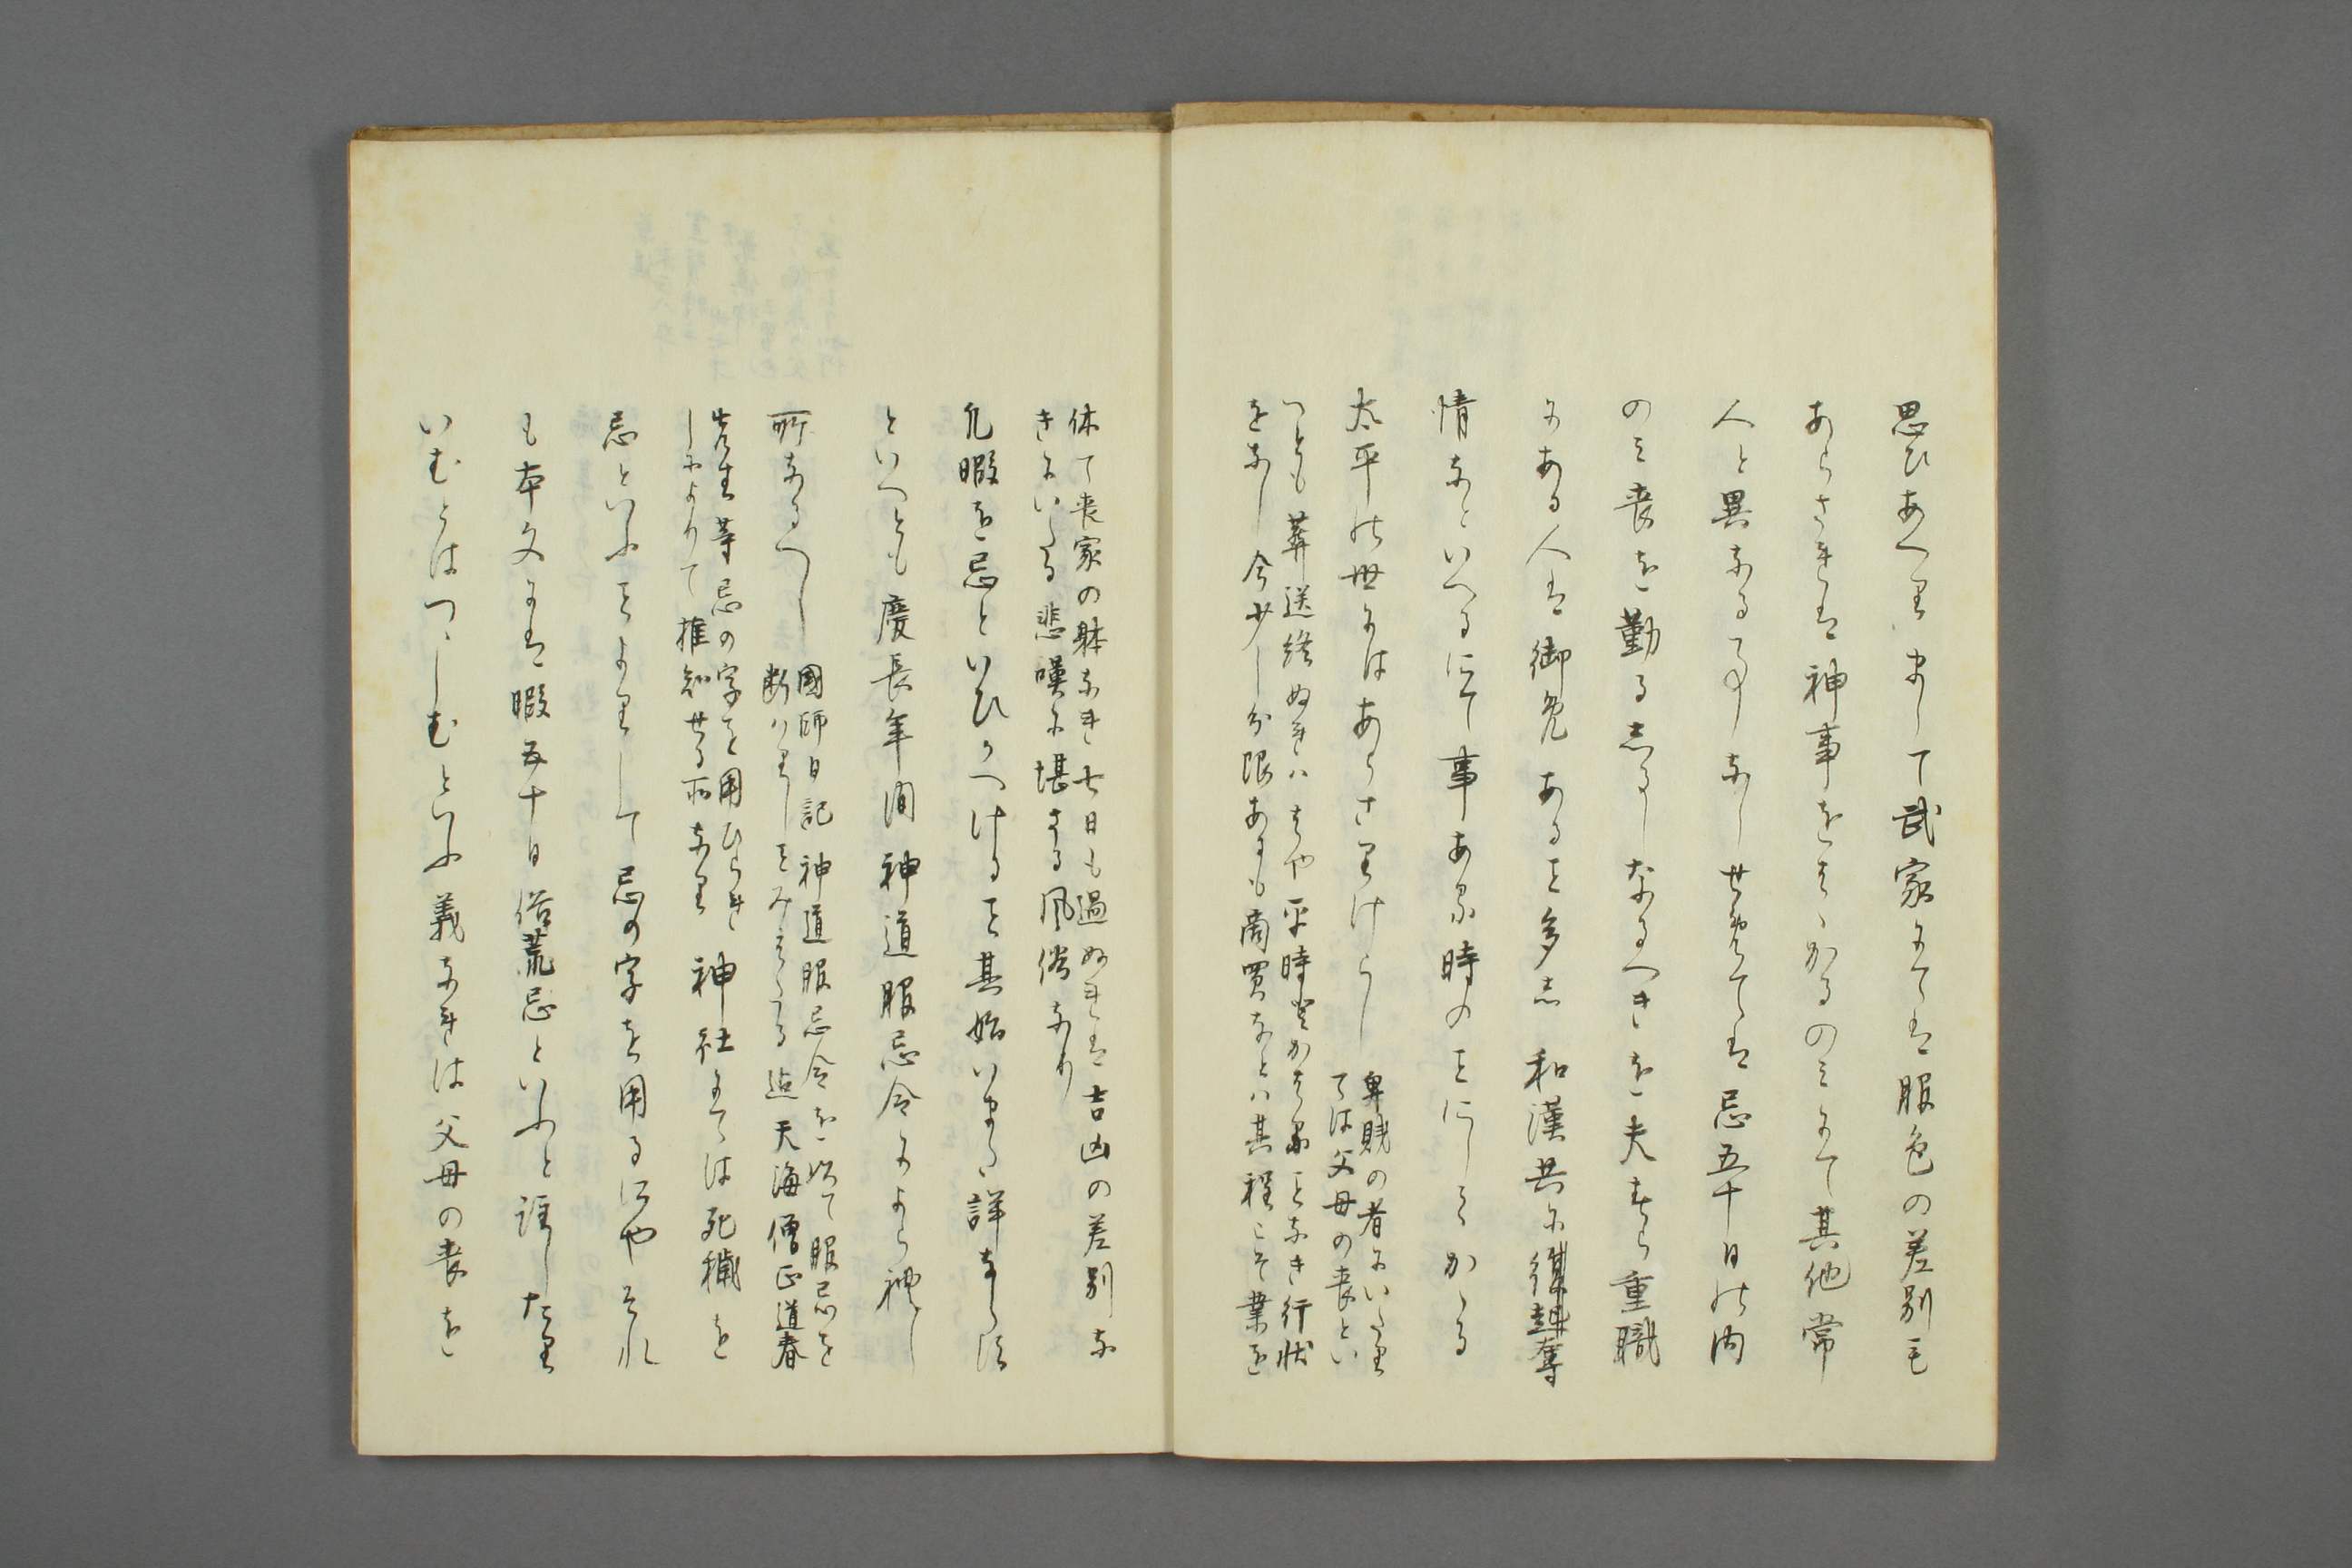 思ひあへりまして武家にては服色の差別も
あらされは神事をはゝかるのみにて其他常
人と異なる事なし世俗ては忌五十日の内
のみ喪を勤るしるしなるへきを夫すら重職
にある人は御免あるを多し和漢共に
情なといへるにて事ある時のことにしてかゝる
太平の世にはあらさりけらし
卑賎の者にいたり
ては父母の喪とい
つとも葬送終ぬれハはや平時とかはることなき行状
をなし今少し分限あるも商買なとハ其程こそ業を
休て喪家の躰なれ七日も過ぬれは吉凶の差別な
きにいたる悲嘆に堪さる風俗なり
凡暇を忌といひかへけること其始いまた詳ならす
といへとも慶長年間神道服忌令によられし
所なるへし
國師日記神道服忌令を以て服忌を
断りしことみえたる 天海僧正道春
先生等忌の字を用ひられ
しによりて推知せる所なり
神社にては死穢を
忌といふことよりして忌の字を用るにやそれ
も本文には暇五十日俗荒忌といふと註したり
いむとはつゝしむといふ義なれは父母の喪を